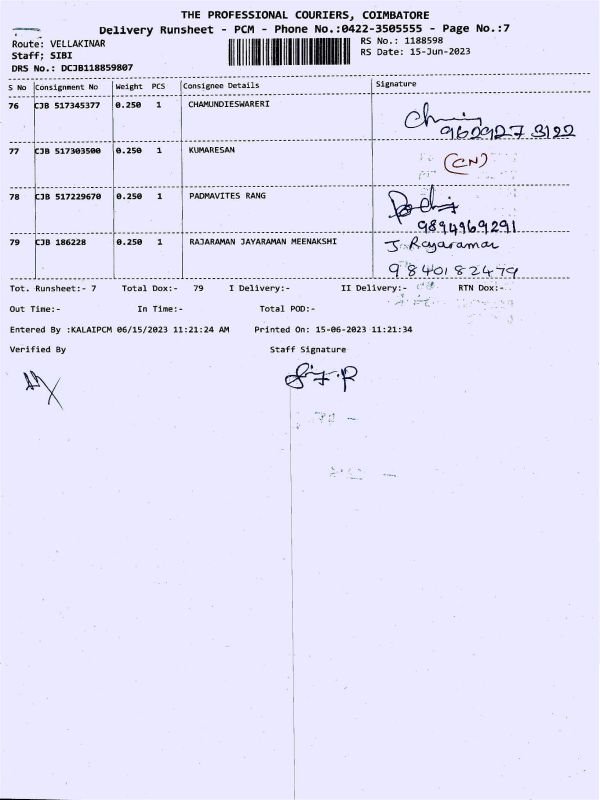 THE PROFESSIONAL COURIERS, COIMBATORE
Delivery Runsheet - PCM - Phone No.:0422-3505555 - Page No.:7
Route: VELLAKINAR RS No.: 1188598
Staff; SIBI RS Date: 15-Jun-2023
DRS No.: DCJB118859807
S No Consignment No Weight PCS Consignee Details Signature
76 CJB 517345377 0.250 1 CHAMUNDIESWARERI
960927 3122
77 CJB 517303500 0.250 1 KUMARESAN (CN)
78 CJB 517229670 0.250 1 PADMAVITES RANG
9894969291
79 CJB 186228 0.250 1 RAJARAMAN JAYARAMAN MEENAKSHI J. Rajaraman
9840182479
Tot. Runsheet:- 7 Total Dox:- 79 I Delivery:- II Delivery:- RTN Dox:-
Out Time:- In Time:- Total POD:-
Entered By :KALAIPCM 06/15/2023 11:21:24 AM Printed On: 15-06-2023 11:21:34
Verified By Staff Signature